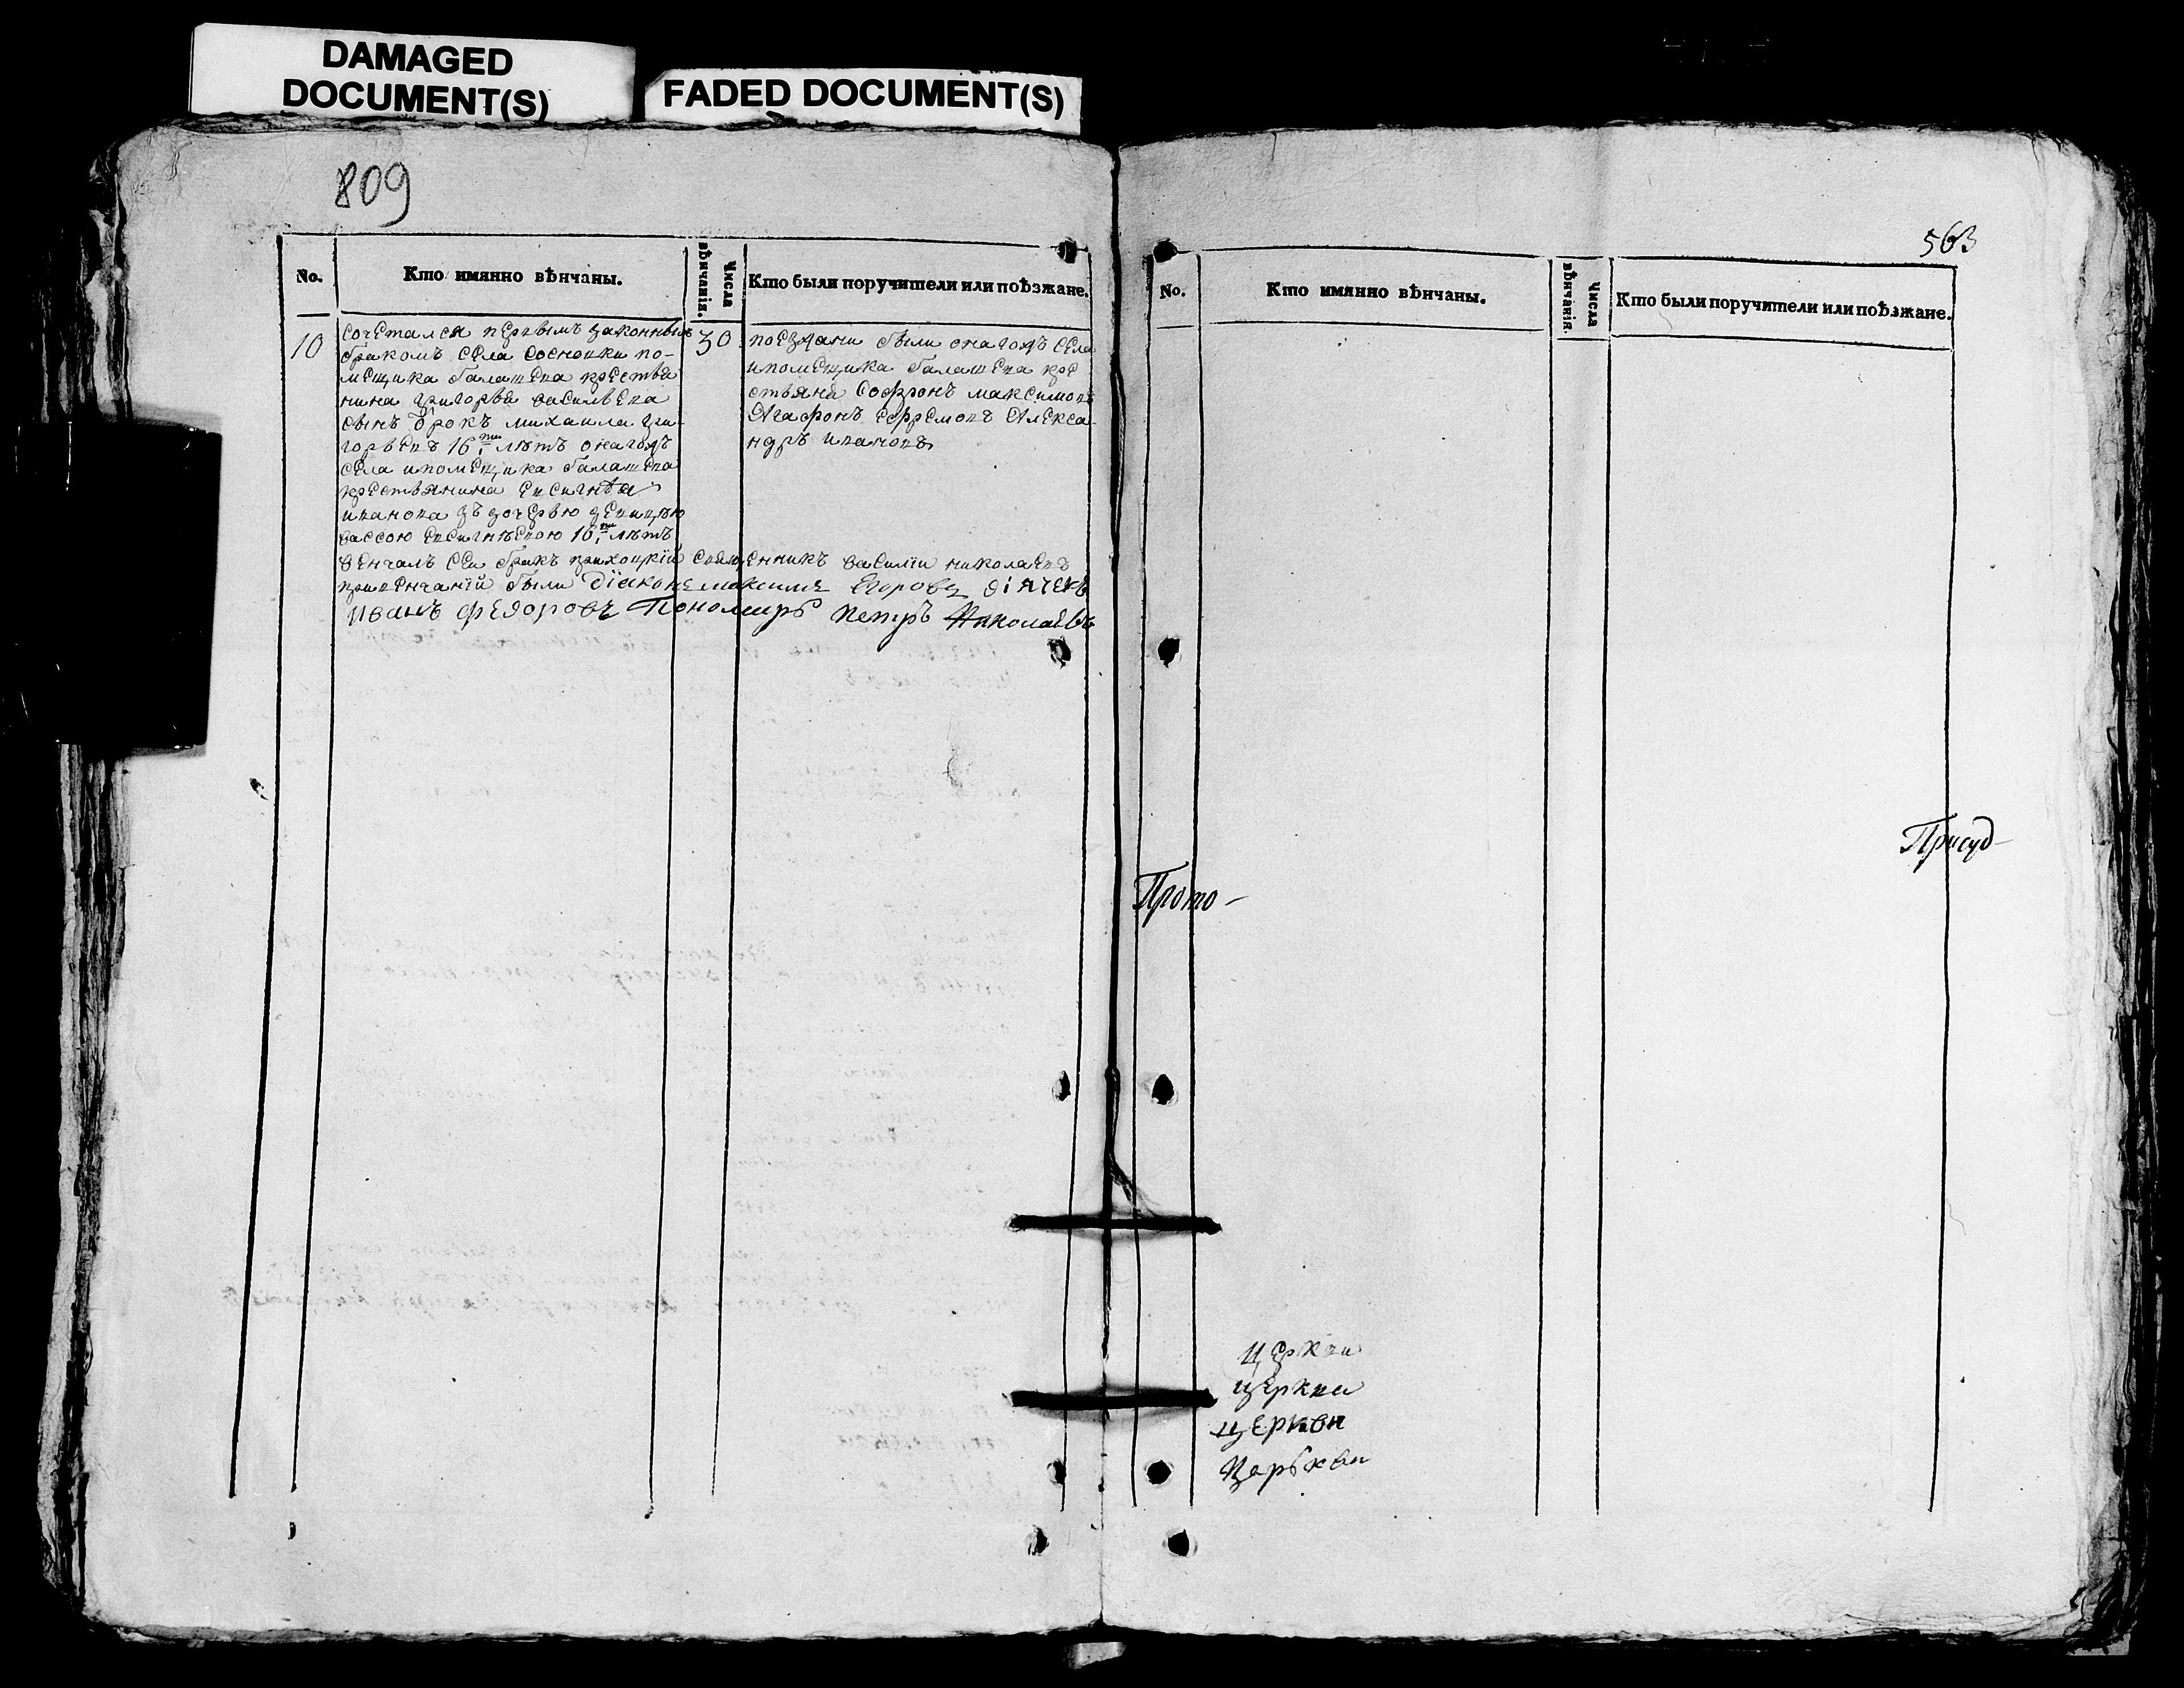 DAMAGED
DOCUMENT(S)
FADED DOCUMENT(S)
809
No.
Кто имянно вѣнчаны.
Числа вѣнчанія.
Кто были поручители или поѣзжане.
10
сочетался первымъ законнымъ
бракомъ села Сосновки по-
мещика балашева крестья
нина григорья васильева
сынъ отрокъ михаила гри-
горьевъ 16ти лѣтъ онагожъ
села и помещика балашева
крестьянина евсигнѣя
иванова зъ дочерью девицѣю
вассою евсигнѣевою 16ти лѣтъ
30
поезжани были онагожъ села
и помещика балашева кре
стьяня Софронъ максимовъ
Агафонъ ефремовъ Алекса-
ндръ ивановъ
венчалъ сеи бракъ прихоцкій священникъ василіи николаевъ
привенчаніи были діаконъ максимъ Егоровъ діячекъ
иванъ федоровъ Пономарь петръ Николаевъ
563
No.
Кто имянно вѣнчаны.
Числа вѣнчанія.
Кто были поручители или поѣзжане.
Присуд-
Прото-
церкви
церкви
церкви
Царькви